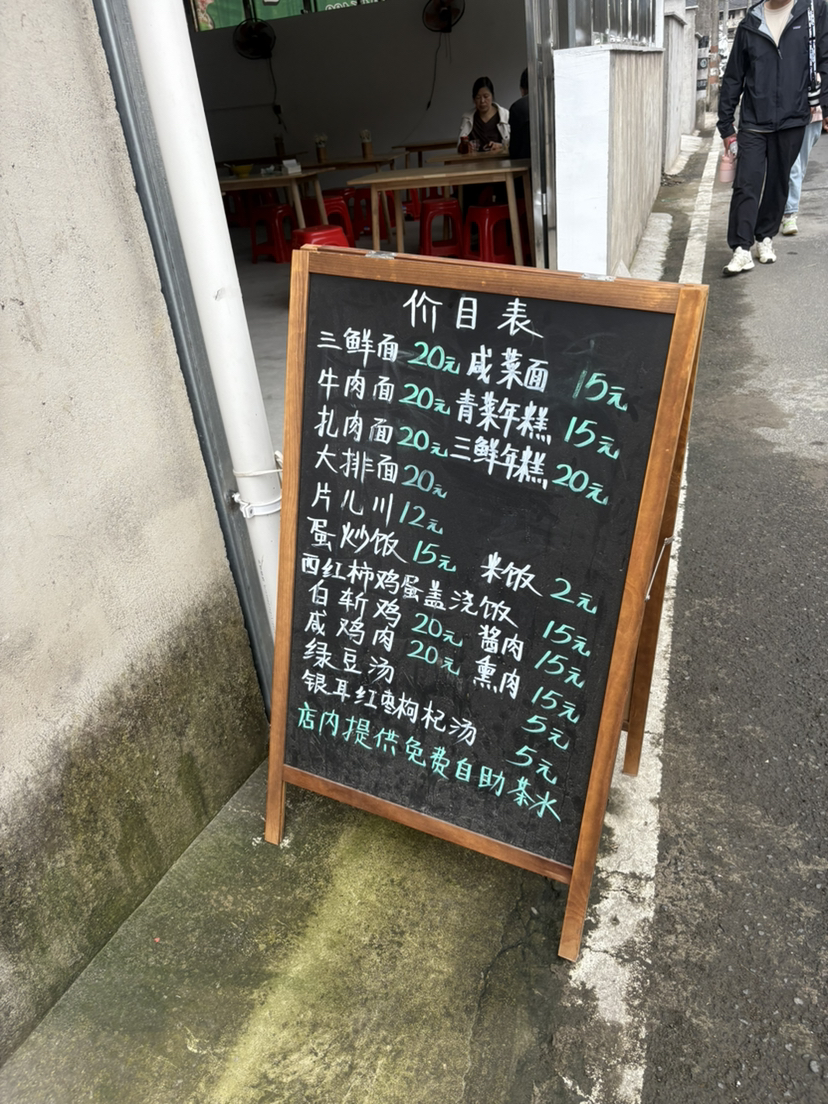 价目表
三鲜面 20元 咸菜面 15元
牛肉面 20元 青菜年糕 15元
扎肉面 20元 三鲜年糕 20元
大排面 20元
片儿川 12元
蛋炒饭 15元 米饭 2元
西红柿鸡蛋盖浇饭 15元
白斩鸡 20元 酱肉 15元
咸鸡肉 20元 熏肉 15元
绿豆汤 5元
银耳红枣枸杞汤 5元
店内提供免费自助茶水